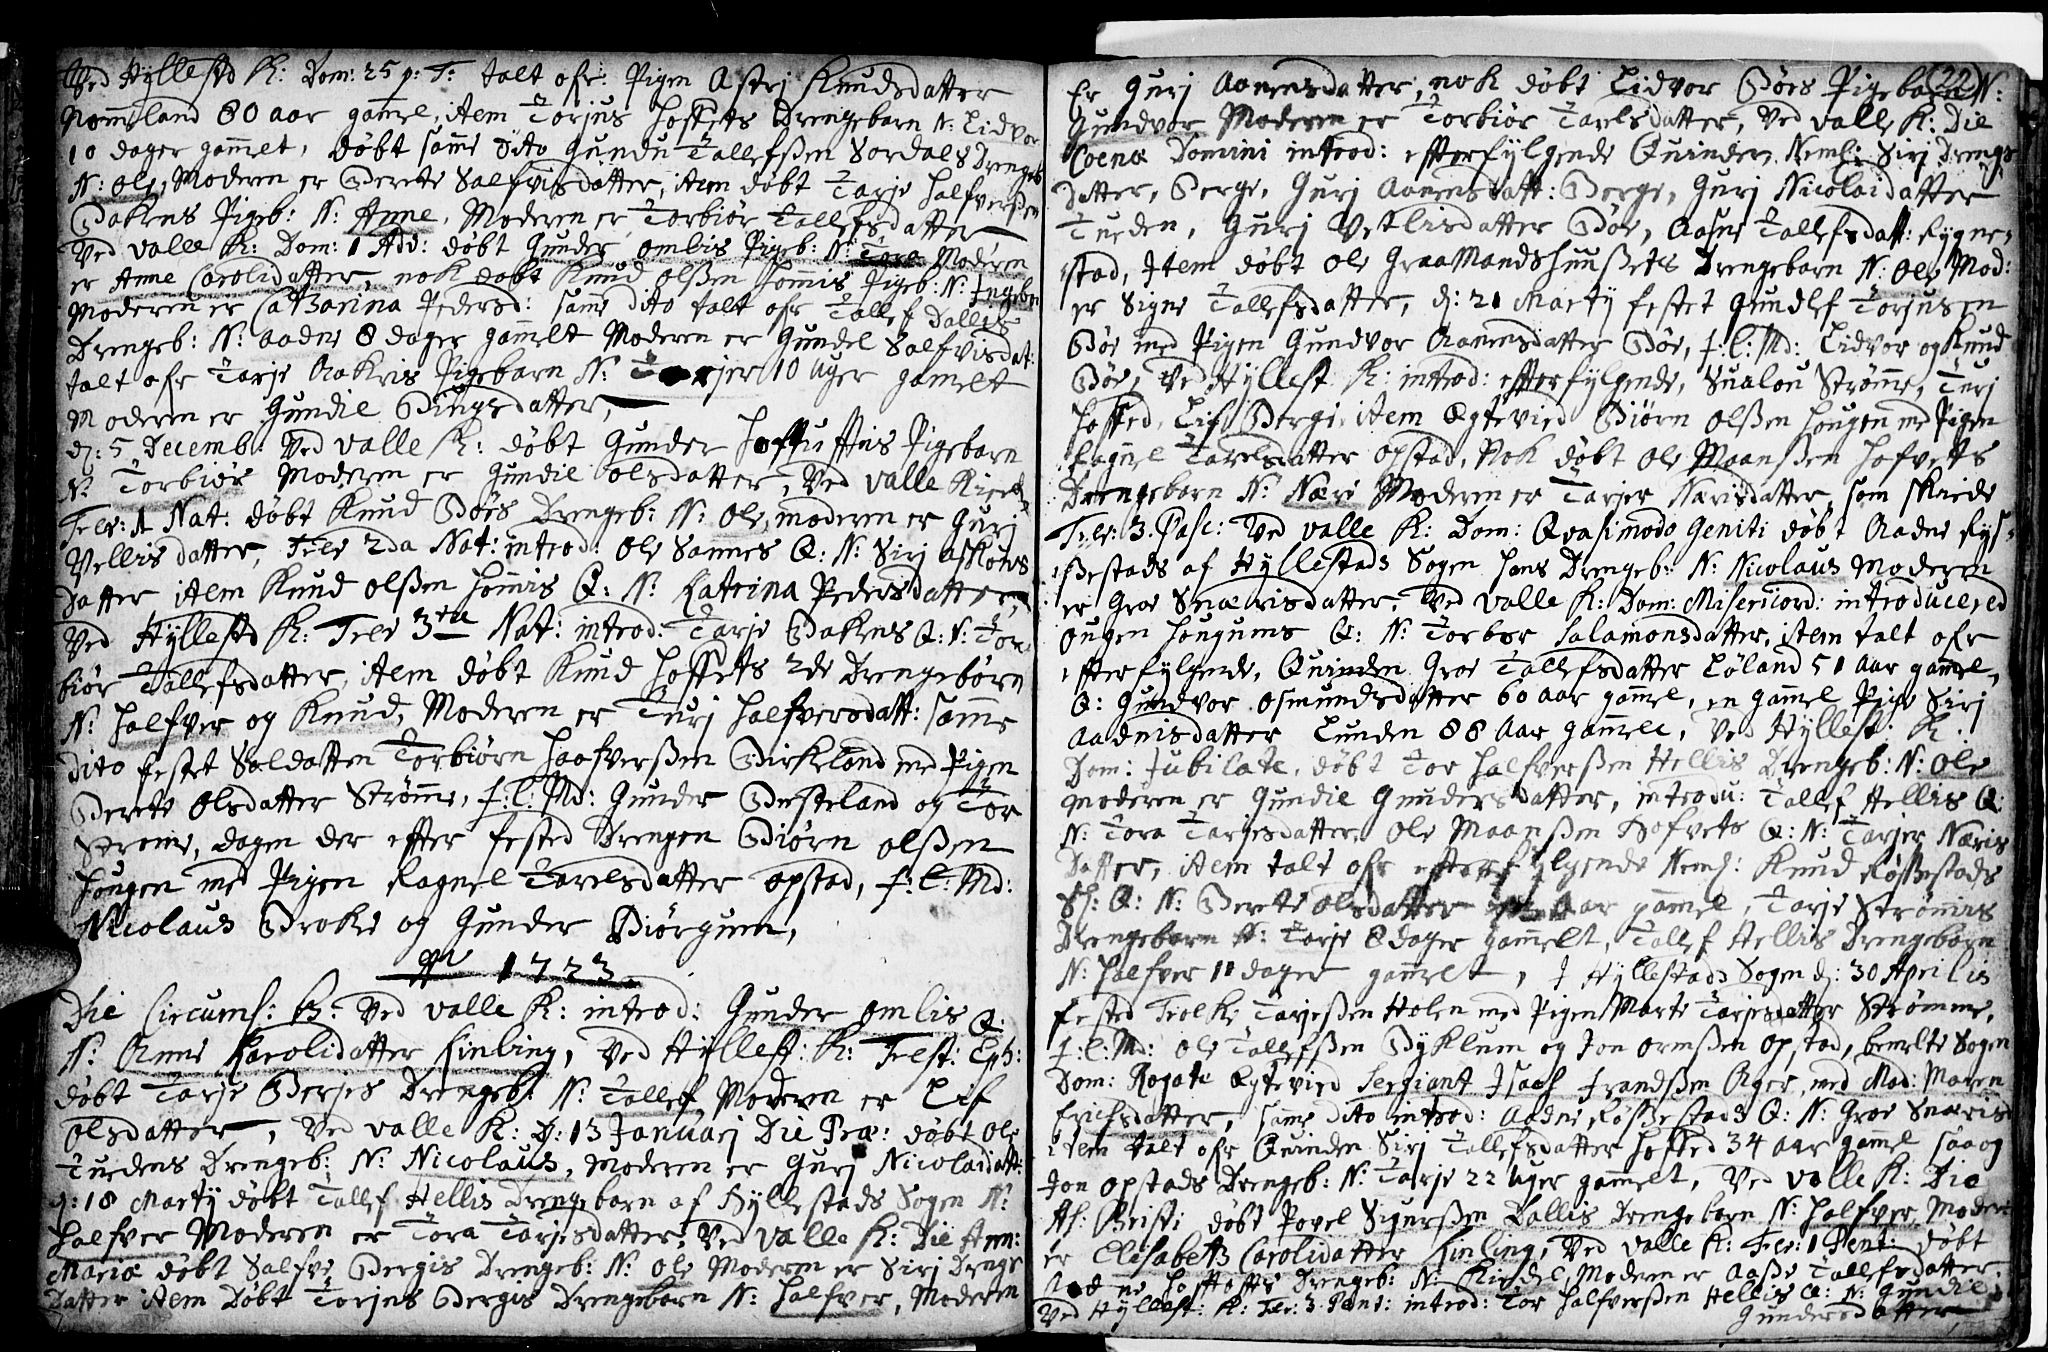 Ved Hyllestd K: Dom: 25 p: T: talt ofr: Pigen Astri Knudsdatter
Nomeland 80 aar gamel, item Torjus Hoffets Drengebarn N: Lidvor
10 dager gamelt, døbt same dito Gundu Tallefsøen Sordals Drengeb
N: Ole, Moderen er Berete Salfvisdatter, item døbt Tarje Halfverssen
Bakens Pigeb: N: Anne, Moderen er Torbiør Tallefsdatter
Ved Valle K: Dom: 1 Adv: døbt Gunder Omlis Pigeb: N: Tore Moderen
er Anne Carolidatter, nok døbt Knud Olssen Homis Pigeb: N: Ingebor
Moderen er Catharina Pedersd: same dito talt ofr Tallef Dallis
Drengeb: N: Aadne 8 dager gamelt Moderen er Gundel Salfvisdat:
talt ofr Tarje Aakris Pigebarn N: Tarjer 10 Uger gamelt
Moderen er Gundil Bingsdatter,
d: 5 Decemb: Ved Valle K: døbt Gunder Hoftuftis Pigebarn
N: Torbiør Moderen er Gundil Olsdatter, Ved Valle Kircke
Feer: 1 Nat: døbt Knud Bøes Drengeb: N: Ole, moderen er Gurj
Vellis datter, Feer 2da Nat: introd: Ole Sannes Q: N: Sirj Asklous
Datter item Knud Olssen Homis Q: N: Katrina Pedersdatter,
Ved Hyllestd K: Feer 3tia Nat: introd: Tarje Bakens Q: N: Tor
biør Tallefsdatter, item døbt Knud Hoffets 2de Drengebørn
N: Halfver og Knud, Moderen er Turj Halfversdatt: same
dito festet Soldatten Torbiørn Haafverssen Birkeland med Pigen
Berete Olsdatter Strøme, f: l: Md: Gunder Besteland og Tor
Strøme, dagen der efter fested Drengen Biørn Olssen
Hougen med Pigen Ragnel Tarelsdatter Opstad, f: l: Md:
Nicolaus Brokke og Gunder Biørgum,
Ao 1723.
Die Circums: Chr: Ved Valle K: introd: Gunder Omlis Q:
N: Anne Karolidatter Kinling, Ved Hyllest: K: Festo: Eph:
døbt Tarje Berges Drengeb: N: Tallef, Moderen er Lif
Olsdatter, Ved Valle K: D: 13 Januarj Die Præ: døbt Ole
Tuedens Drengeb: N: Nicolaus, Moderen er Gurj Nicolaidatt:
d: 18 Martij døbt Tallef Hellis Drengebarn af Hyllestads Sogen N:
Halfver Moderen er Tora Tarjesdatter, Ved Valle K: Die Ann:
Mariæ døbt Salfve Bergis Drengeb: N: Ole Moderen er Sirj Drengs
Datter item Døbt Torjus Bergis Drengebarn N: Halfver, Moderen
(22)
Er Gurj Aanensdatter, nok døbt Lidvor Bøes Pigebarn N:
Gundvor Moderen er Torbiør Tarelsdatter, Ved Valle K: Die
Coenæ Domini introd: efterfylgende Quinder, Neml: Sirj Drengs
datter, Berge, Gurj Aanensdatt: Berge, Gurj Nicolaidatter
Tueden, Gurj Vetlisdatter Bøe, Aasne Tallefsdatt: Rygne,
stad, Item døbt Ole Graamandshuusets Drengebarn N: Ole Mod:
er Signe Tallefsdatter, d: 21 Martij festet Gundlef Torjusen
Bøe med Pigen Gundvor Aanensdatter Bøe, f: l: Md: Lidvor og Knud
Bøe, Ved Hyllest: K: introd: efterfylgende, Sualou Strøme, Turj
Hoffed, Lif Bergi, item Egtevied Biørn Olssen Hougen med Pigen
Ragnel Tarelsdatter Opstad, Nok døbt Ole Maanssen Hofvets
Drengebarn N: Næri Moderen er Tarjer Nærisdatter, som skeede
Feer: 3. Pasc: Ved Valle K: Dom: Qvasimodo Geniti døbt Aadne Rys,
ssestads af Hyllestads Sogen hans Drengeb: N: Nicolaus Moderen
er Groe Snærisdatter, Ved Valle K: Dom: Misericord: introducered
Ougen Hougums Q: N: Torber Salamonsdatter, item talt ofr
efterfylgende, Quinden Groe Tallefsdatter Løland 51 Aar gamel,
Q: Gundvor Osmundsdatter 60 aar gamel, en gamel Pige Sirj
Aadnisdatter Lunden 88 Aar gamele, Ved Hyllest: K:
Dom: Jubilate, døbt Tor Halfverssen Hellis Drengeb: N: Ole
Moderen er Gundil Gundersdatter, introdu: Tallef Hellis Q:
N: Tora Tarjesdatter Ole Maanssen Hofvets Q: N: Tarjer Næris
Datter, item talt ofr efterfylgende Neml: Knud Røssestads
Sl: Q: N: Berete Olsdatter Aar gamel, Tarje Strømis
Drengebarn N: Tarje 8 dager gamelt, Tallef Hellis Drengebarn
N: Halfver 11 dager gamelt, I Hyllestads Sogen d: 30 Aprilis
fested Feolke Tarjessen Holen med Pigen Marte Tarjesdatter Strømme,
f: l: Md: Ole Tallefssen Byklum og Jon Ormssen Opstad, bemelte Sogen
Dom: Rogate Egtevied Sergiant Isach Frandssen Ager med Mad: Maren
Erichsdatter, same dito introd: Aadne Røssestads Q: N: Groe Snæris
item talt ofr Quinden Sirj Tallefsdatter Hoffed 34 aar gamel saa og
Jon Opstads Drengeb: N: Tarje 22 Uger gamelt, Ved Valle K: Die
As: Christi døbt Povel Sigurssen Dallis Drengebarn N: Halfver Moderen
er Elisabeth Carolidatter Kinling, Ved Valle K: Feer: 1 Pent: døbt
Aadne Hoftuftis Drengeb: N: Kiedel, Moderen er Aasse Tallefsdatter,
Ved Hyllest: K: Feer: 3. Pent: introd: Tor Halfverssen Hellis Q: N: Gundil
Gundersdatter